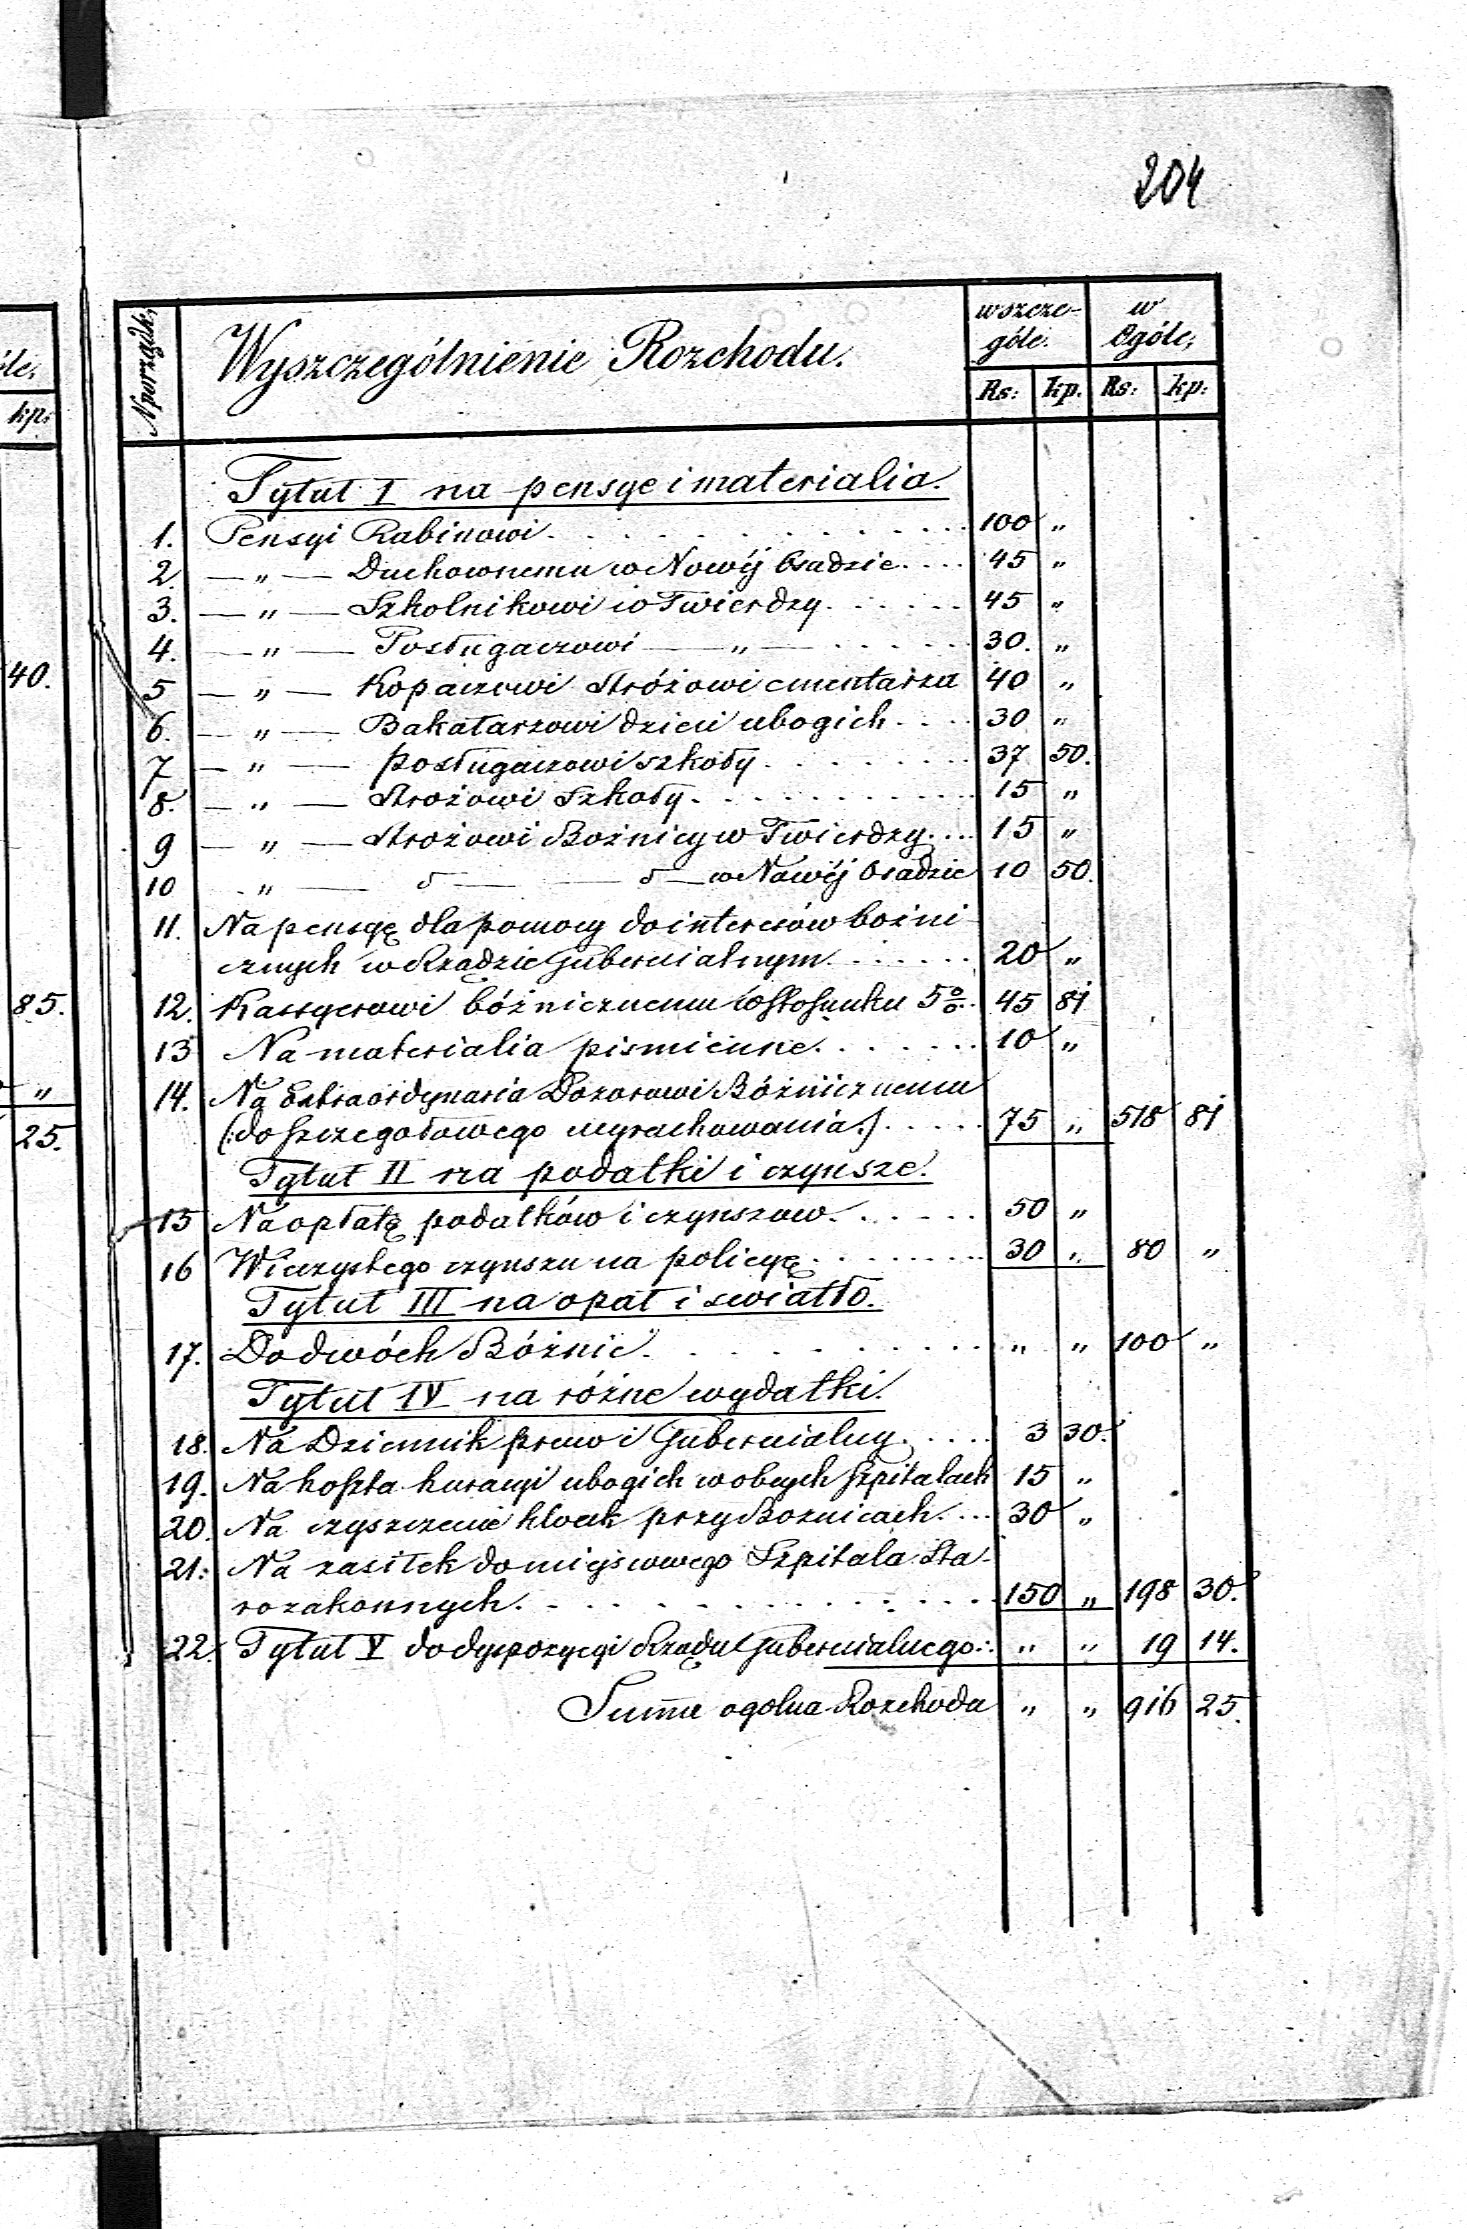 204
óle,
kp:
40.
85.
„
25.
N porządk,
Wyszczególnienie Rozchodu.
wszcze-
góle.
w
Ogóle,
Rs: kp. Rs: kp:
Tytuł I na pensye i materialia.
1. Pensyi Rabinowi . . . . . . . . 100 „
2. — „ — Duchownemu w Nowéj Osadzie . . . . 45 „
3. — „ — Szkolnikowi w Twierdzy . . . . . . 45 „
4. — „ — Posługaczowi — „ — . . . . . . 30. „
5 — „ — Kopaczowi Stróżowi cmentarza 40 „
6. — „ — Bakałarzowi dzieci ubogich . . . . 30 „
7 — „ — posługaczowi szkoły . . . . . . . . 37 50.
8. — „ — Strożowi Szkoły . . . . . . . . . . 15 „
9 — „ — Strożowi Bożnicy w Twierdzy . . . 15 „
10 „ — d — — d — w Nowéj Osadzie 10 50.
11. Na pensyę dla pomocy do interesów bożni-
cznych w Rządzie Gubernialnym . . . . . . 20 „
12. Kassyerowi bóżnicznemu w stosunku 5 %. 45 81
13 Na materialia pismienne . . . . . . . 10 „
14. Na Extraordynaria Dozorowi Bóżnicznemu
(: do szczegołowego wyrachowania :) . . . . . 75 „ 518 81
Tytuł II na podatki i czynsze.
15 Na opłatę podatków i czynszow . . . . . . 50 „
16 Wieczystego czynszu na policyę . . . . . . . 30 „ 80 „
Tytuł III na opał i swiatło.
17. Do dwóch Bóżnic . . . . . . . . . . „ „ 100 „
Tytuł IV na różne wydatki.
18. Na Dziennik praw i Gubernialny . . . . . 3 30.
19. Na koszta kuracyi ubogich w obcych szpitalach 15 „
20. Na czyszczenie kloak przy Boznicach . . . 30 „
21: Na zasiłek do miejscowego Szpitala Sta-
rozakonnych . . . . . . . . . . . . . 150 „ 198 30.
22. Tytuł V do dyspozycyi Rządu Gubernialnego . . „ „ 19 14.
Summa ogolna Rozchodu „ „ 916 25.